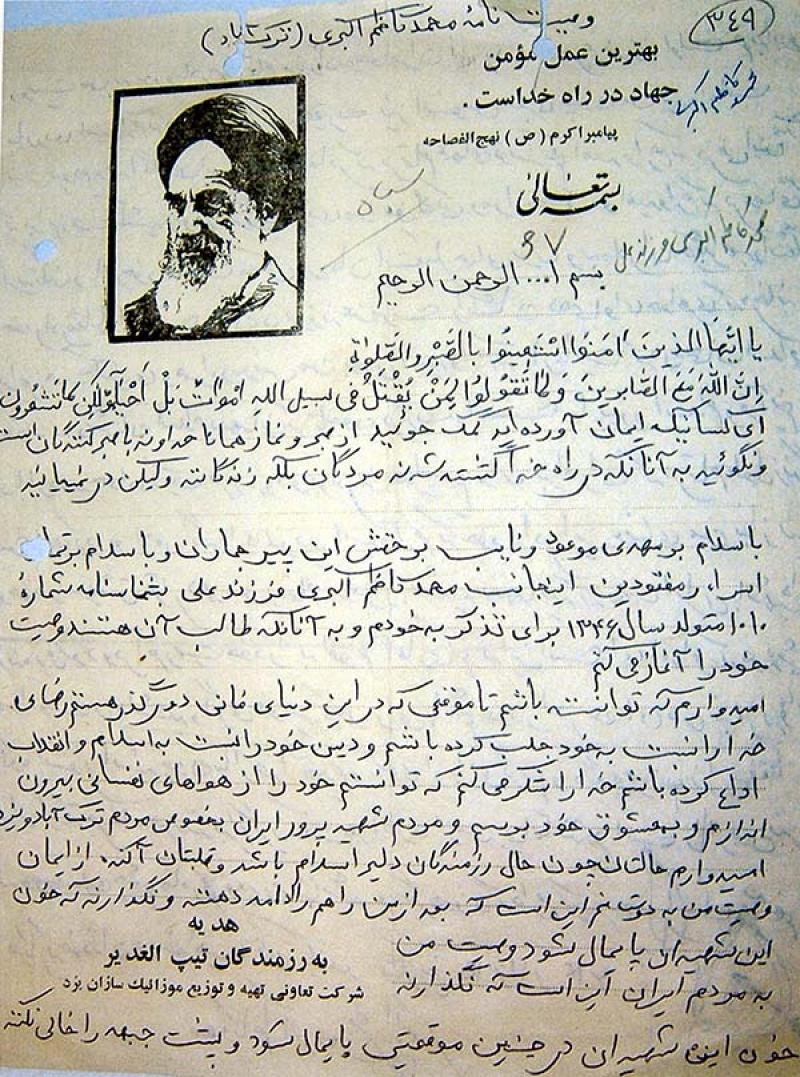 ۳۴۹
وصیت نامهٔ محمد کاظم اکبری (ترک آباد)
بهترین عمل مؤمن
جهاد در راه خداست .
محمد کاظم اکبری
پیامبر اکرم (ص) نهج الفصاحه
بسمه تعالی
محمد کاظم اکبری فرزند علی
۶۷
بسم ا... الرحمن الرحیم
یا ایّها الذین آمنوا استعینوا بالصّبر و الصّلوة
اِنَّ اللّهَ مَعَ الصّابرینَ وَلا تَقولوا لِمَنْ یُقْتَلُ فی سبیل اللهِ امْواتٌ بَلْ اَحْیاءٌ وَلکِن لا تَشعُرون
ای کسانیکه ایمان آورده اید کمک جوئید از صبر و نماز همانا خداوند با صبر کنندگان است
و نگوئید به آنانکه در راه خدا کشته شدند مردگان بلکه زندگانند ولیکن در نمییابید
با سلام بر مهدی موعود و نایب بر حقش این پیر جماران و با سلام بر تمام
اسرا، و مفقودین اینجانب محمد کاظم اکبری فرزند علی بشماسنامه شمارهٔ
۱۰۱۰ متولد سال ۱۳۴۶ برای تذکر به خودم و به آنانکه طالب آن هستند وصیت
خود را آغاز می کنم
امیدوارم که توانسته باشم تا موقعی که در این دنیای فانی و زودگذر هستم رضای
خدا را نسبت به خود جلب کرده باشم و دین خود را نسبت به اسلام و انقلاب
اداء کرده باشم خدا را شکر می کنم که توانستم خود را از هواهای نفسانی بیرون
اندازم و به معشوق خود برسم و مردم شهید پرور ایران بخصوص مردم ترک آباد و یزد
امیدوارم حالتان چون حال رزمندگان دلیر اسلام باشد و قلبتان آکنده از ایمان
وصیت من به دوستانم این است که بعد از من راهم را ادامه دهند و نگذارند که خون
این شهیدان پایمال بشود وصیت من
به مردم ایران این است که نگذارند
هدیه
به رزمندگان تیپ الغدیر
شرکت تعاونی تهیه و توزیع موزائیک سازان یزد
خون این شهیدان در چنین موقعیتی پایمال بشود و پشت جبهه را خالی نکنند